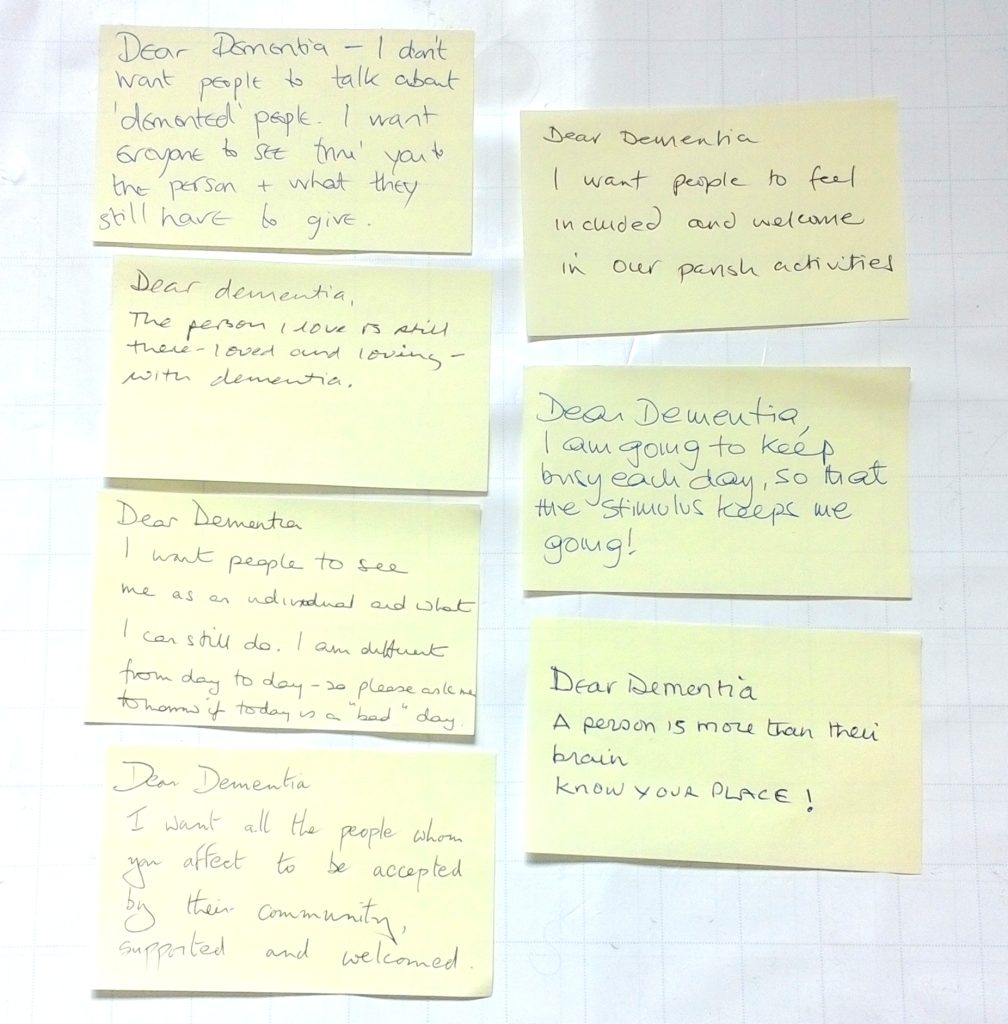 Dear Dementia – I don't
want people to talk about
'demented' people. I want
everyone to see thru' you to
the person + what they
still have to give.
Dear dementia,
The person I love is still
there – loved and loving –
with dementia.
Dear Dementia
I want people to see
me as an individual and what
I can still do. I am different
from day to day – so please ask me
tomorrow if today is a "bad" day.
Dear Dementia
I want all the people whom
you affect to be accepted
by their community,
supported and welcomed.
Dear Dementia
I want people to feel
included and welcome
in our parish activities
Dear Dementia,
I am going to keep
busy each day, so that
the stimulus keeps me
going!
Dear Dementia
A person is more than their
brain
KNOW YOUR PLACE!